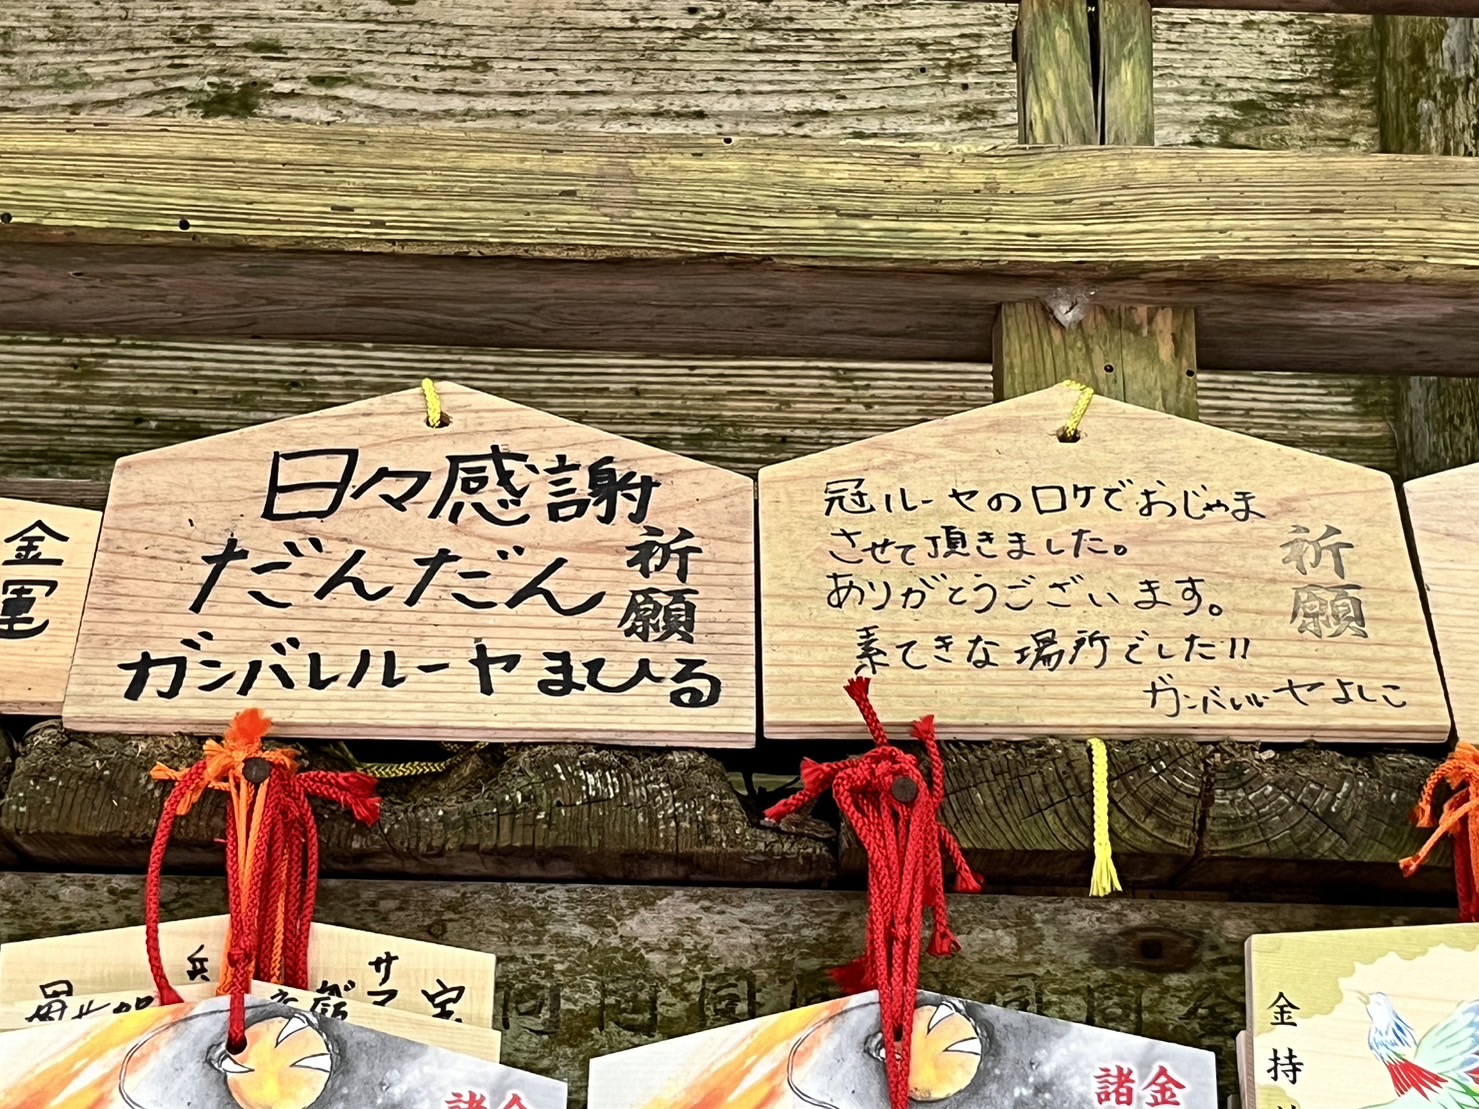 日々感謝
だんだん
ガンバレルーヤ まひる
祈願
冠ルーヤのロケでおじゃま
させて頂きました。
ありがとうございます。
素てきな場所でした!!
ガンバレルーヤよしこ
祈願
金運
兵
サ
諸金
諸金
金持